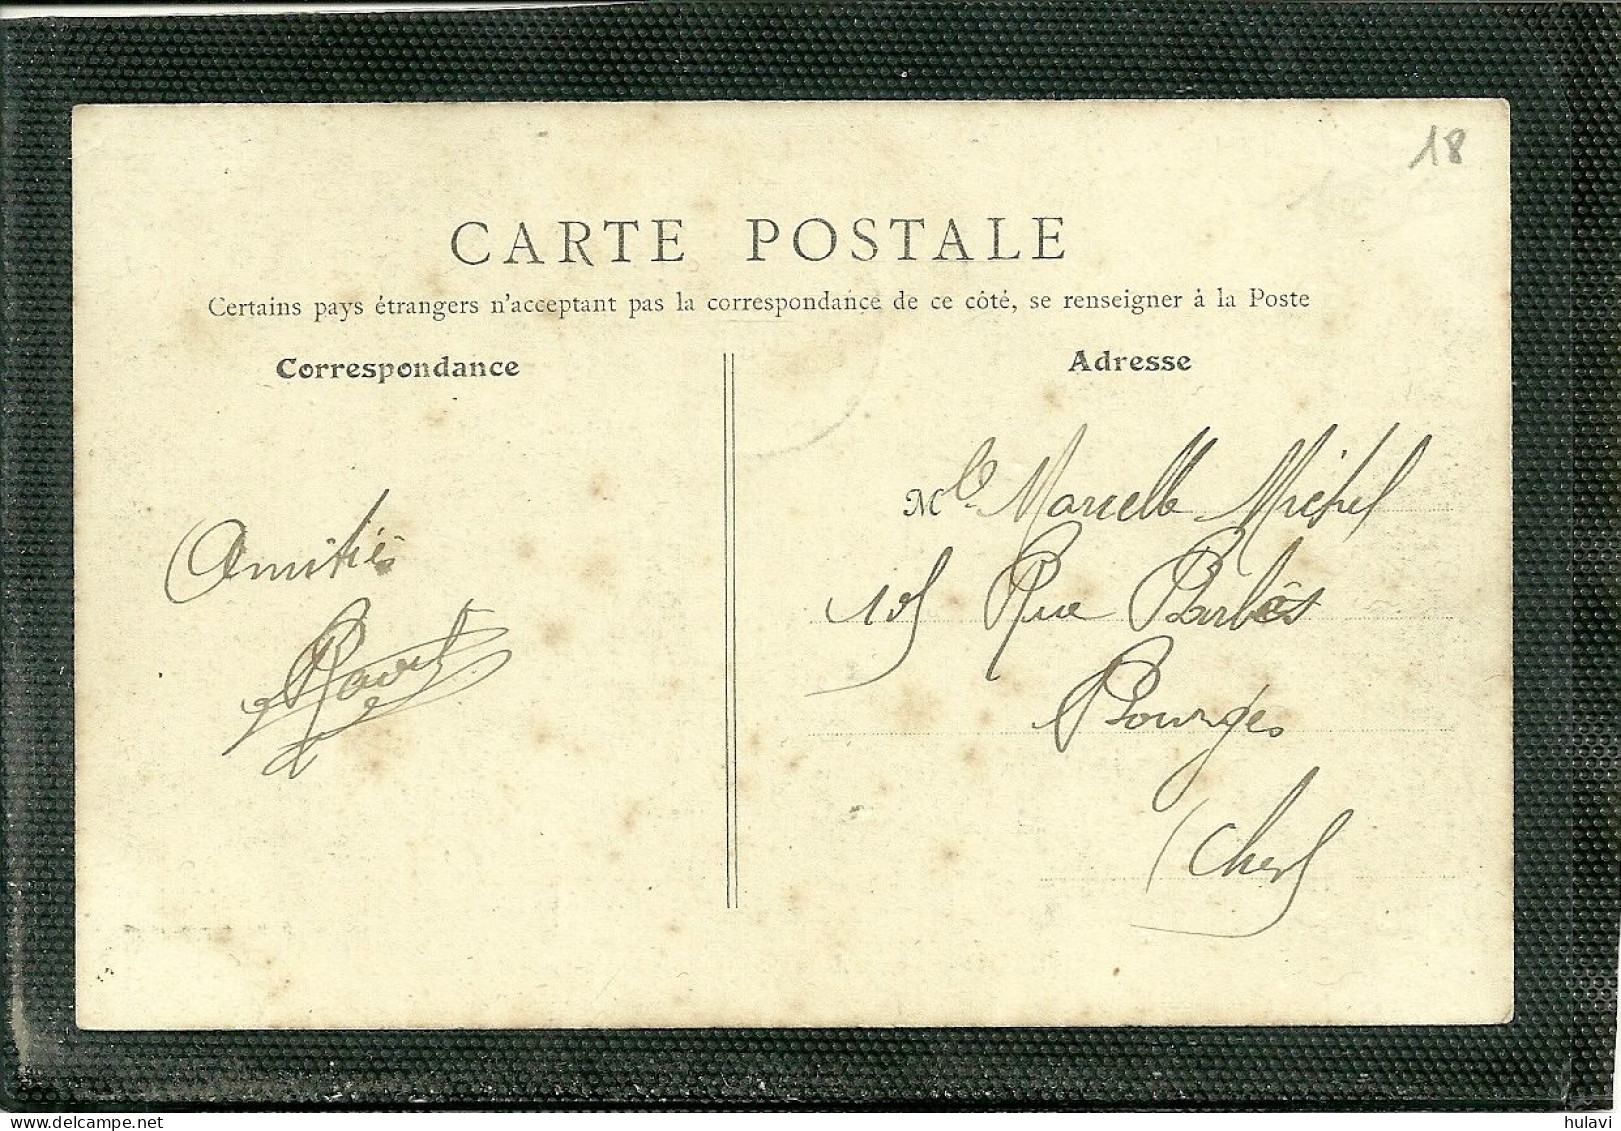 18
CARTE POSTALE
Certains pays étrangers n'acceptant pas la correspondance de ce côté, se renseigner à la Poste
Correspondance
Adresse
Amitiés
Mlle Marcelle Michel
Rue Barbès
Bourges
(Cher)
hulavi